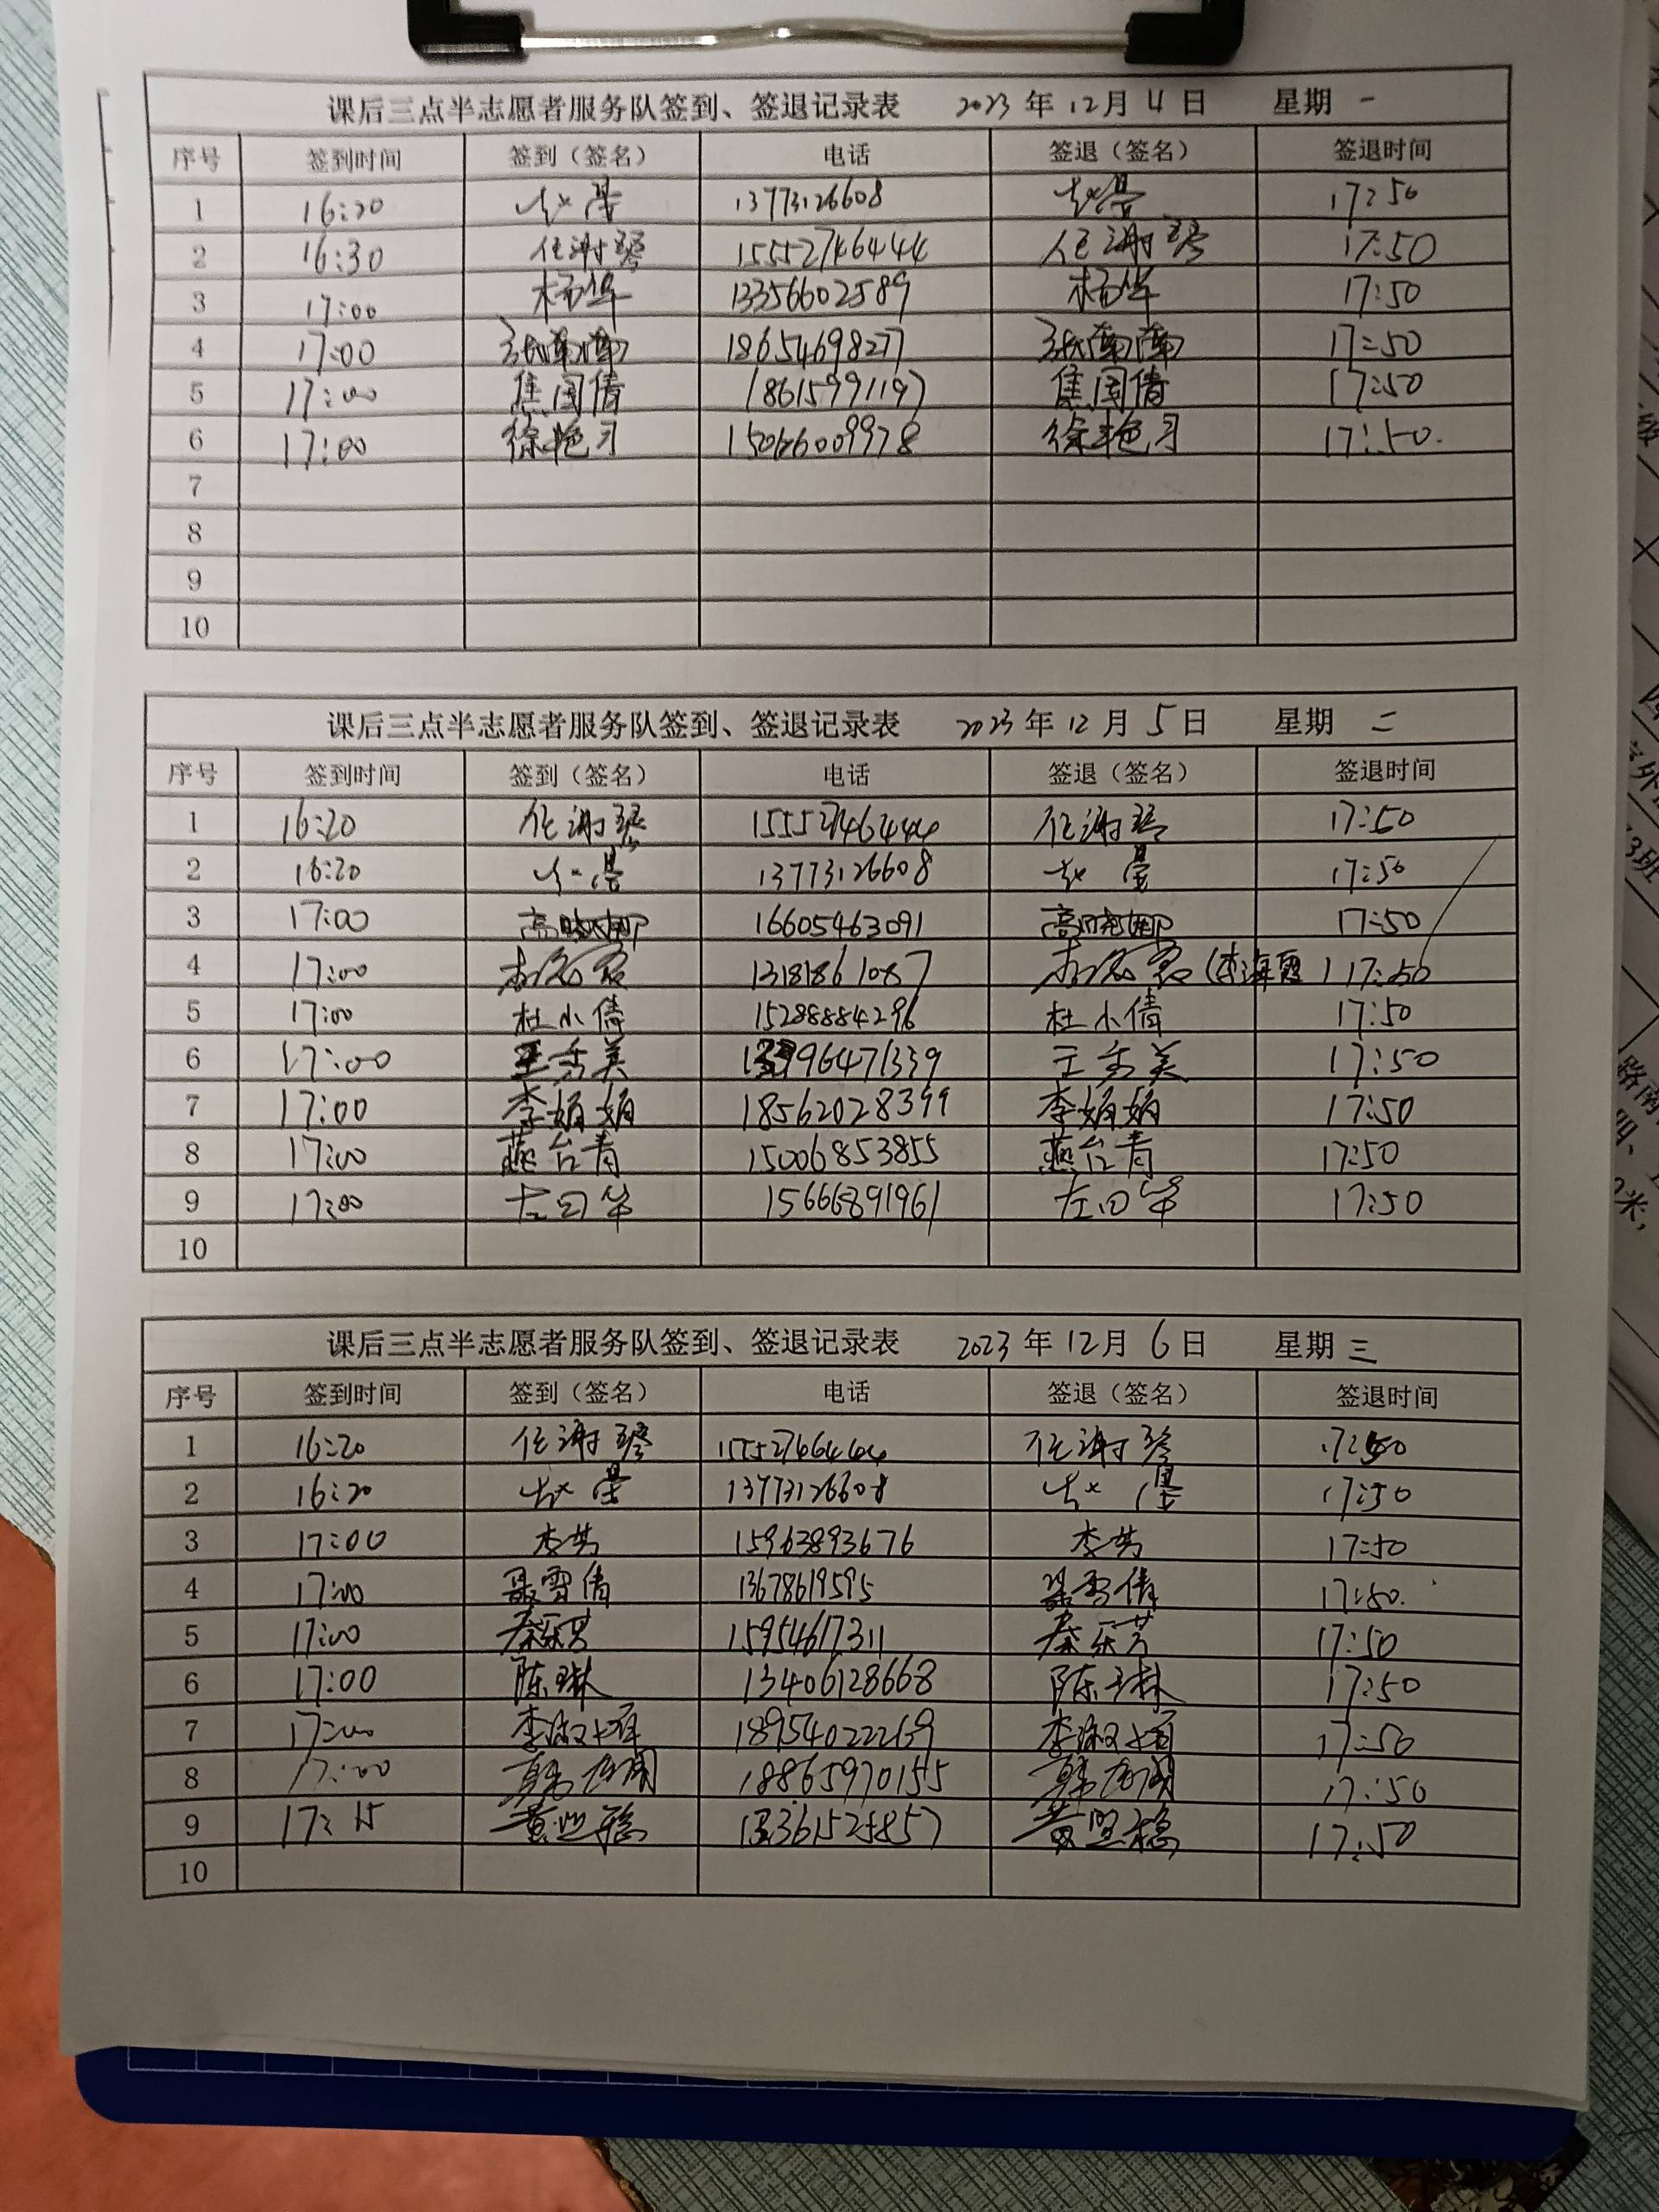 课后三点半志愿者服务队签到、签退记录表 2023 年 12 月 4 日 星期 一
序号 签到时间 签到（签名） 电话 签退（签名） 签退时间
1 16:20 13773126608 17:50
2 16:30 任谢琴 15552746444 任谢琴 17:50
3 17:00 杨华 13356602589 杨华 17:50
4 17:00 18654698277 17:50
5 17:00 焦国倩 18615991197 焦国倩 17:50
6 17:00 徐艳习 15066009978 徐艳习 17:50.
7
8
9
10
课后三点半志愿者服务队签到、签退记录表 2023 年 12 月 5 日 星期 二
序号 签到时间 签到（签名） 电话 签退（签名） 签退时间
1 16:20 任谢琴 15552746444 任谢琴 17:50
2 16:20 13773126608 17:50
3 17:00 高晓娜 16605463091 高晓娜 17:50
4 17:00 13181861087 (李海霞) 17:50
5 17:00 杜小倩 15288884296 杜小倩 17:50
6 17:00 王秀美 王秀美 17:50
7 17:00 李娟娟 18562028399 李娟娟 17:50
8 17:00 燕台青 15006853855 燕台青 17:50
9 17:00 左回华 15666891961 左回华 17:50
10
课后三点半志愿者服务队签到、签退记录表 2023 年 12 月 6 日 星期 三
序号 签到时间 签到（签名） 电话 签退（签名） 签退时间
1 16:20 任谢琴 15552746444 任谢琴 17:50
2 16:20 13773126608 17:50
3 17:00 李芳 15963893676 李芳 17:50
4 17:00 聂雪倩 13678619595 聂雪倩 17:50.
5 17:00 秦乐芳 15954617311 秦乐芳 17:50
6 17:00 陈琳 13406128668 陈琳 17:50
7 17:00 18954022269 17:50
8 17:00 18865970155 17:50
9 17:15 13361525857 17:50
10